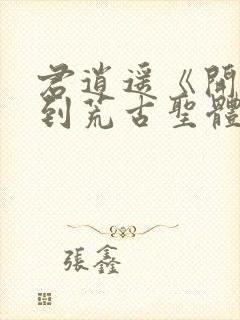 君逍遥《開
到荒古聖體
張鑫